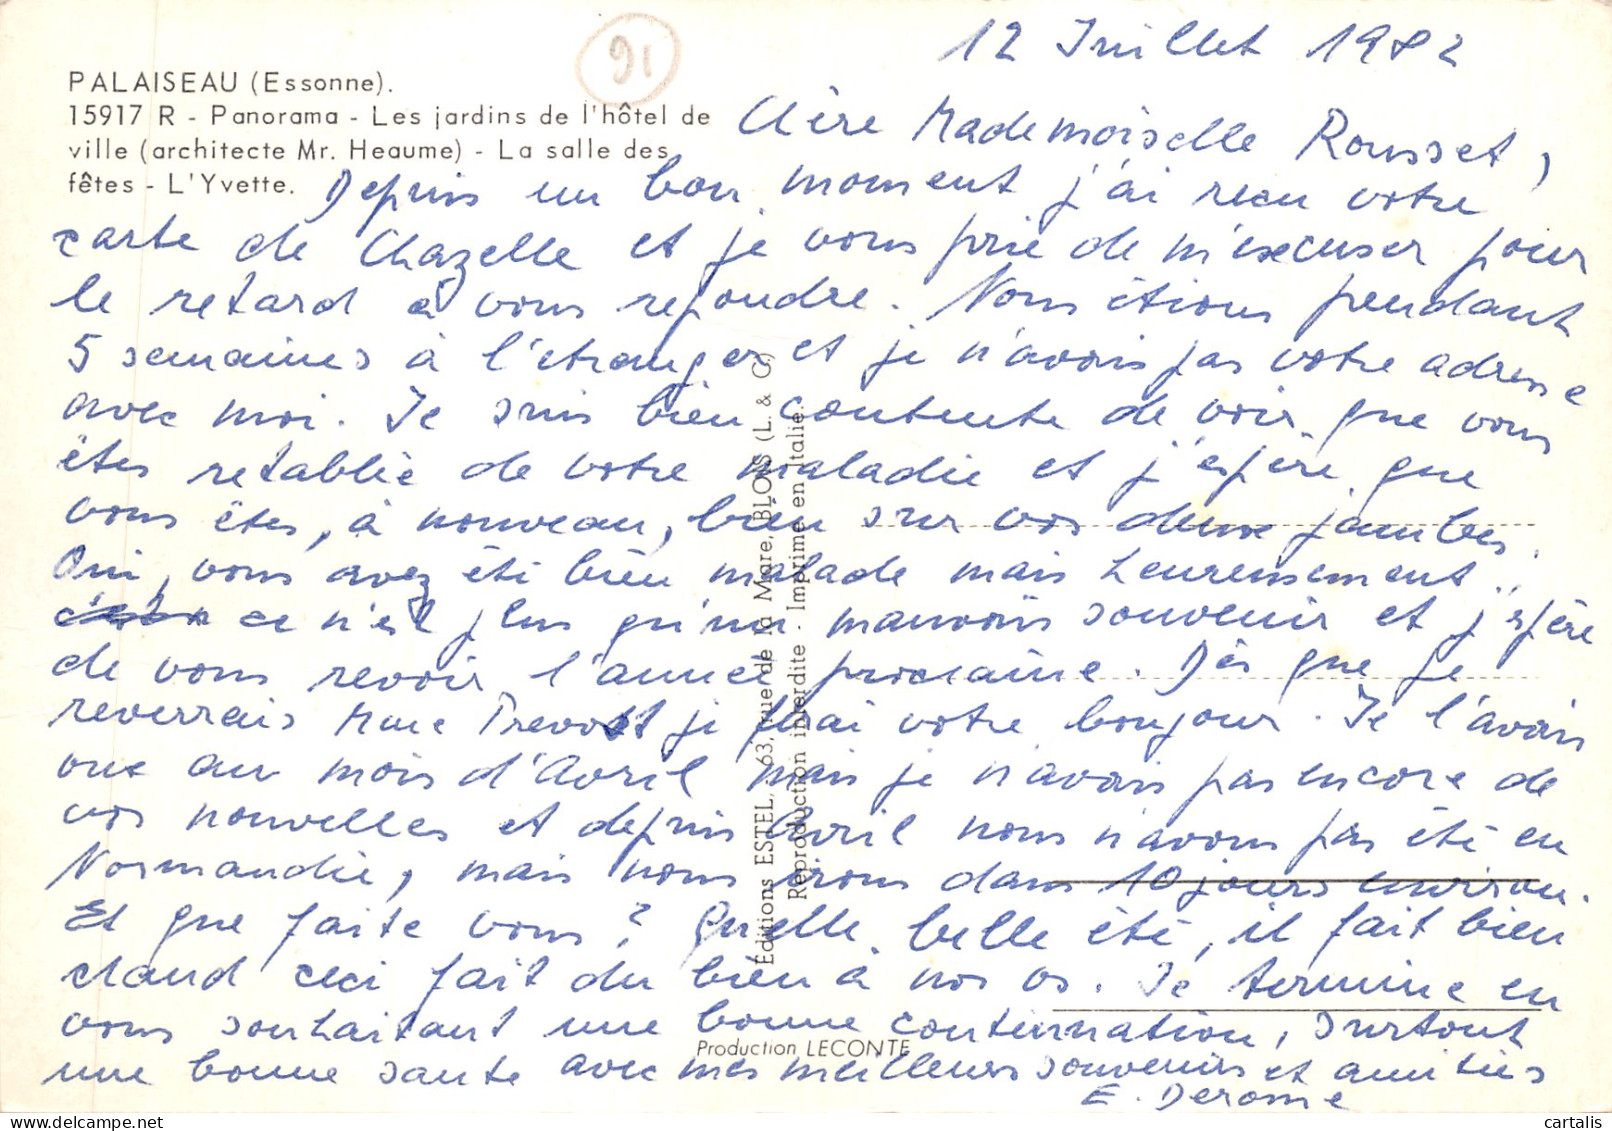 12 Juillet 1982
91
PALAISEAU (Essonne).
15917 R - Panorama - Les jardins de l'hôtel de
ville (architecte Mr. Heaume) - La salle des
fêtes - L'Yvette.
Chère Mademoiselle Rousset,
Depuis un bon moment j'ai recu votre
carte de Chazelle et je vous prie de m'excuser pour
le retard à vous repondre. Nous étions pendant
5 semaines à l'etranger et je n'avais pas votre adresse
avec moi. Je suis bien contente de voir que vous
êtes retablie de votre maladie et j'espère que
vous êtes, à nouveau, bien sur vos deux jambes.
Oui, vous avez été bien malade mais heureusement
ce n'est plus qu'un mauvais souvenir et j'espère
de vous revoir l'année prochaine. Dès que je
reverrais Marc Prevost je ferai votre bonjour. Je l'avais
vue au mois d'Avril mais je n'avais pas encore de
vos nouvelles et depuis Avril nous n'avons pas été en
Normandie, mais nous irons dans 10 jours environ.
Et que faite vous? Quelle belle été, il fait bien
chaud ceci fait du bien à nos os. Je termine en
vous souhaitant une bonne continuation, surtout
une bonne sante avec mes meilleurs souvenirs et amitiés
E. Derome
Éditions ESTEL, 63, rue de la Mare, BLOIS (L. & C.)
Reproduction interdite - Imprimé en Italie.
Production LECONTE
cartalis